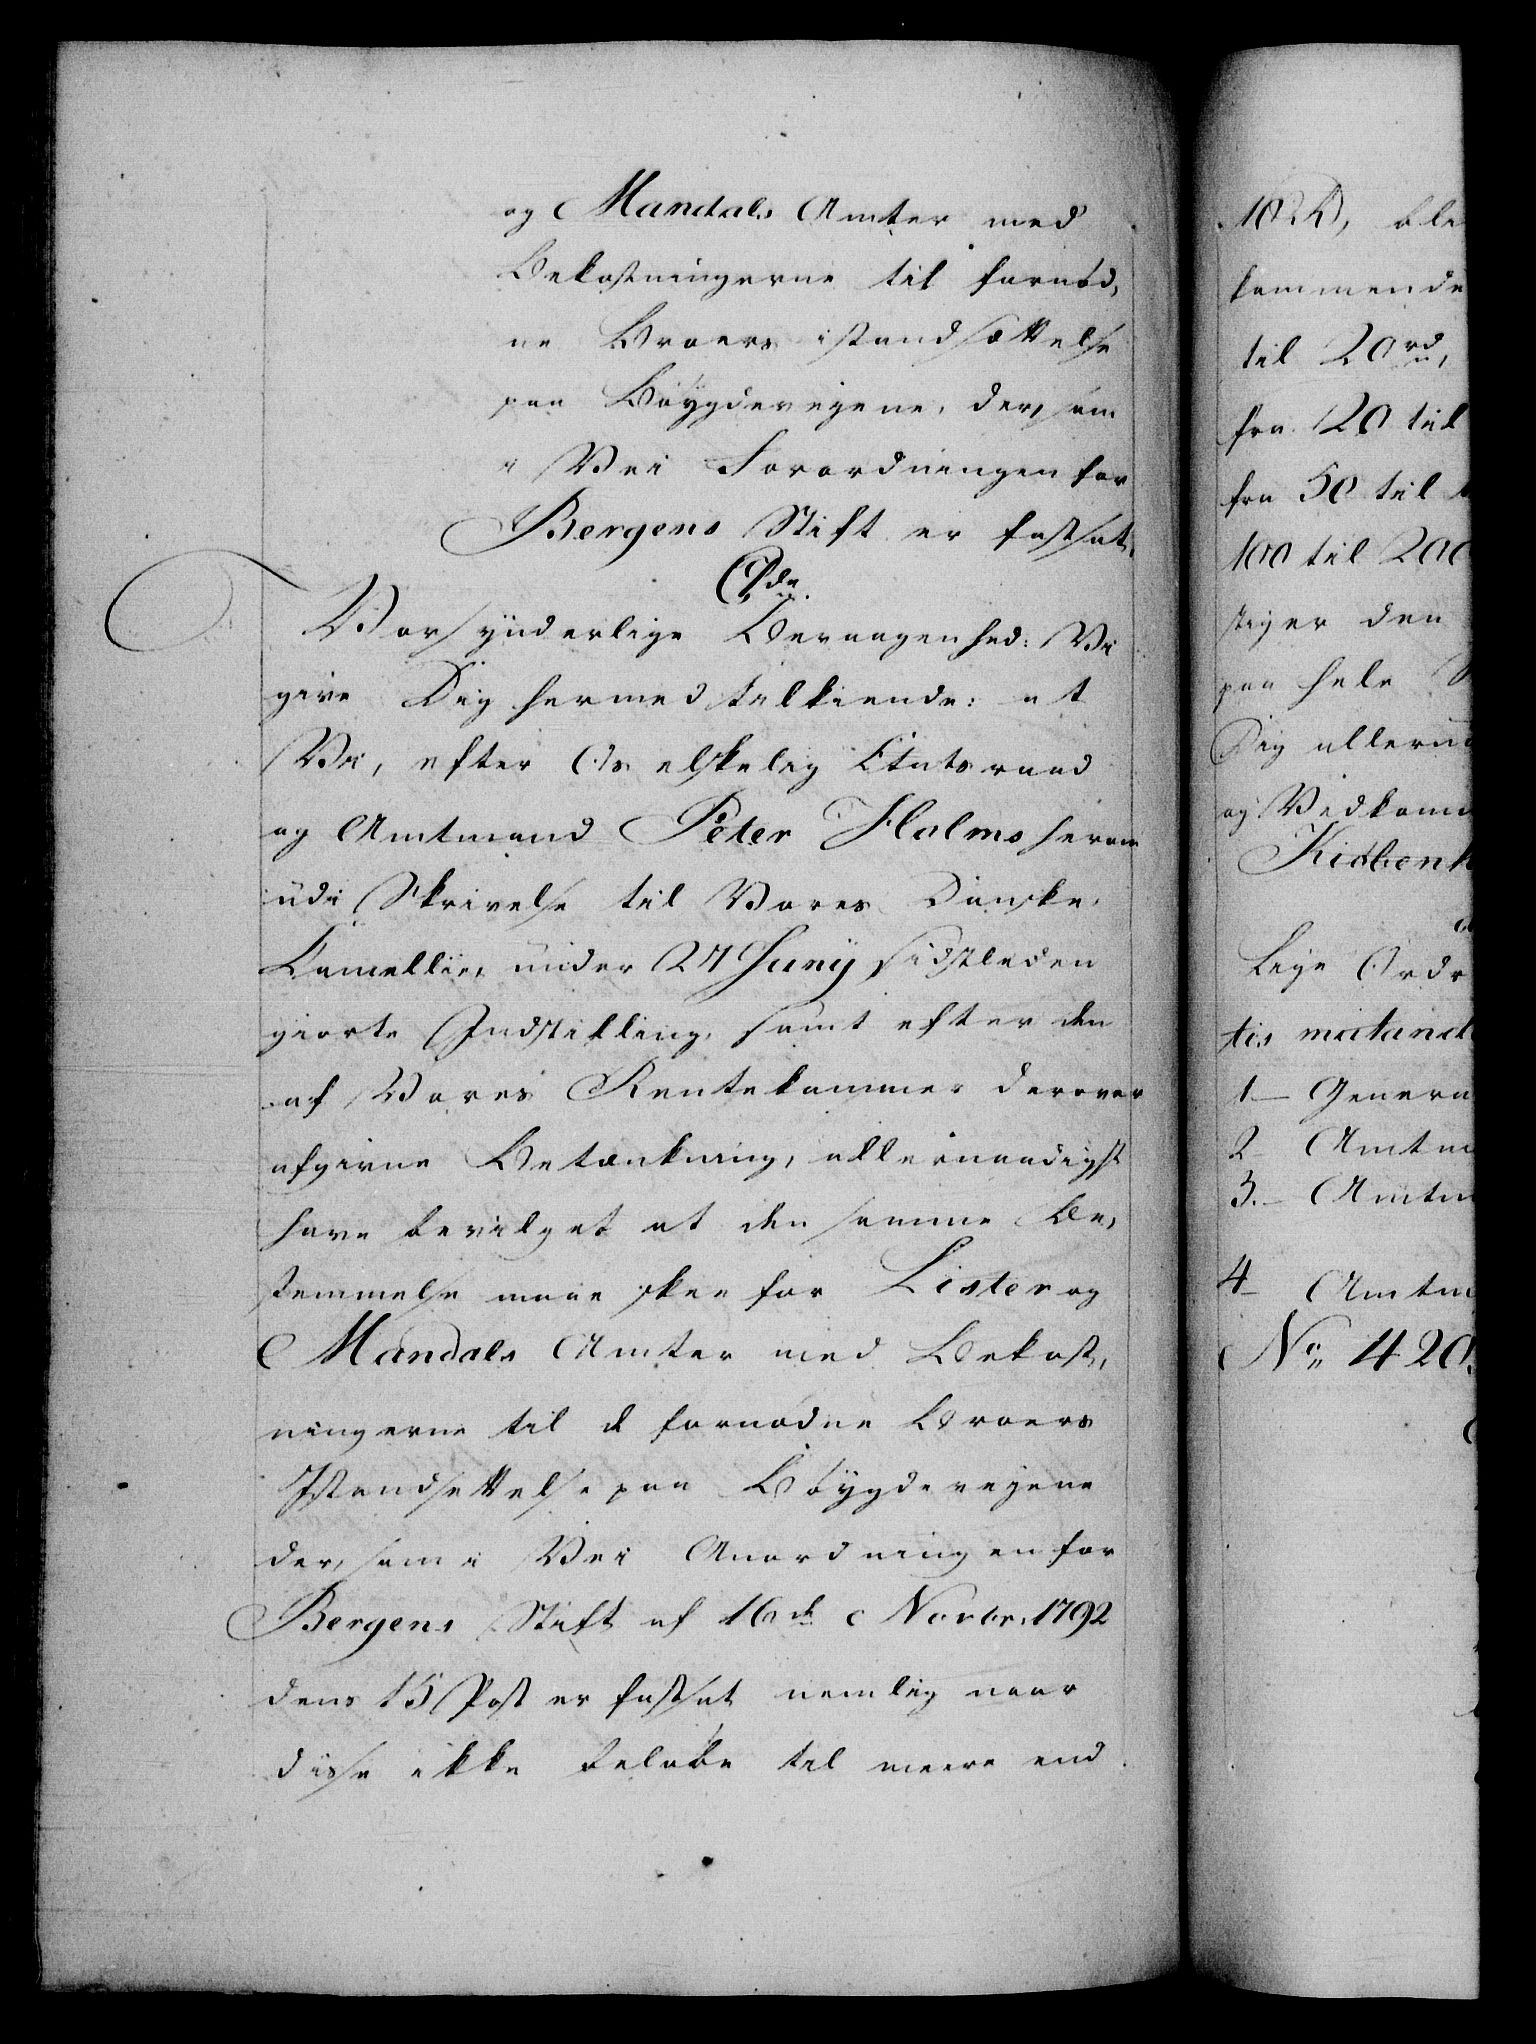 og Mandals Amter med
Bekostningerne til fornød,
ne Broers istandsættelse
paa Böygdeveyene, der, som
i Vei Forordningen for
Bergens Stift er fastsat,
Vor synderlige Bevaagenhed: Vi
give Dig hermed tilkiende: at
Vi, efter Os elskelig Etatsraad
og Amtmand Peter Holms herom
udi Skrivelse til Vores Danske
Cancellie, under 27 Junij sidstleden
giorte Indstilling, samt efter den
af Vores Rentekammer derover
afgivne Betænkning, allernaadigst
have bevilget at den samme Be,
stemmelse maae skee for Lister og
Mandals Amter med Bekost,
ningerne til de fornødne Broers
Istandsettelse paa Böygdeveyene
der, som i Vei Anordningen for
Bergens Stift af 16de Novbr. 1792
dens 15 Post er fastsat nemlig naar
disse ikke beløbe til meere end
kommende
til 20 rd,
fra 20 til
fra 50 til
100 til 200
stiger den
paa hele
Dig allern
og Vedkom
Kiøbenh
Lige Ordr
tis mutand
1 – Genera
2 Amtm
3. – Amtm
4 – Amtm
No 420.